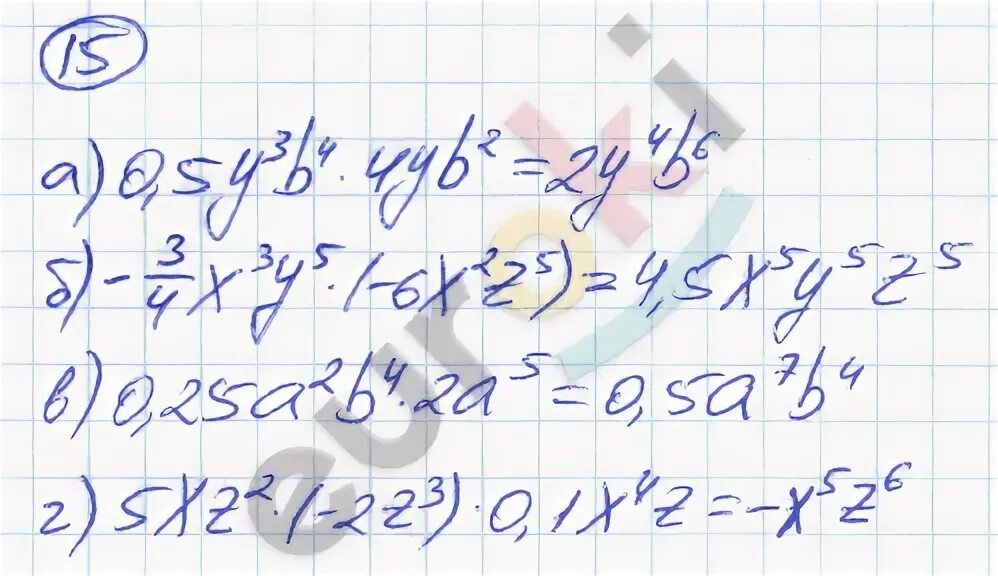 15
а) 0,5y³b⁴ · 4yb² = 2y⁴b⁶
б) -3/4 x³y⁵ · (-6x²z⁵) = 4,5x⁵y⁵z⁵
в) 0,25a²b⁴ · 2a⁵ = 0,5a⁷b⁴
г) 5xz² · (-2z³) · 0,1x⁴z = -x⁵z⁶
euroki